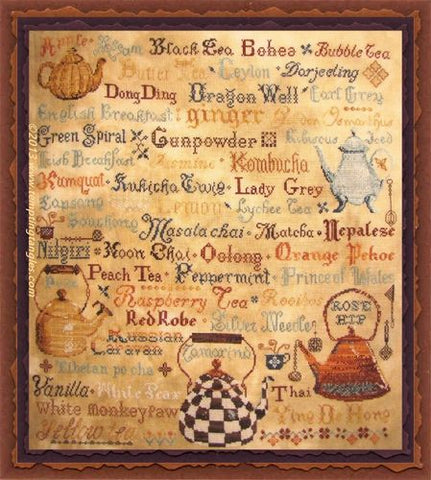 Apple Assam Black Tea Bohea Bubble Tea
Butter Tea Ceylon Darjeeling
Dong Ding Dragon Well Earl Grey
English Breakfast ginger Golden Osmanthus
Green Spiral Gunpowder Hibiscus Iced
Irish Breakfast Jasmine Kombucha
Kumquat Kukicha Twig Lady Grey
Lapsang Souchong Lemon Lychee Tea
Masala chai Matcha Nepalese
Nilgiri Noon Chai Oolong Orange Pekoe
Peach Tea Peppermint Prince of Wales
Raspberry Tea Rooibos
Red Robe Silver Needle ROSE HIP
Russian Caravan Tamarind
Tibetan po cha
Vanilla White Pear Thai
White monkey paw Ying De Hong
Yellow tea